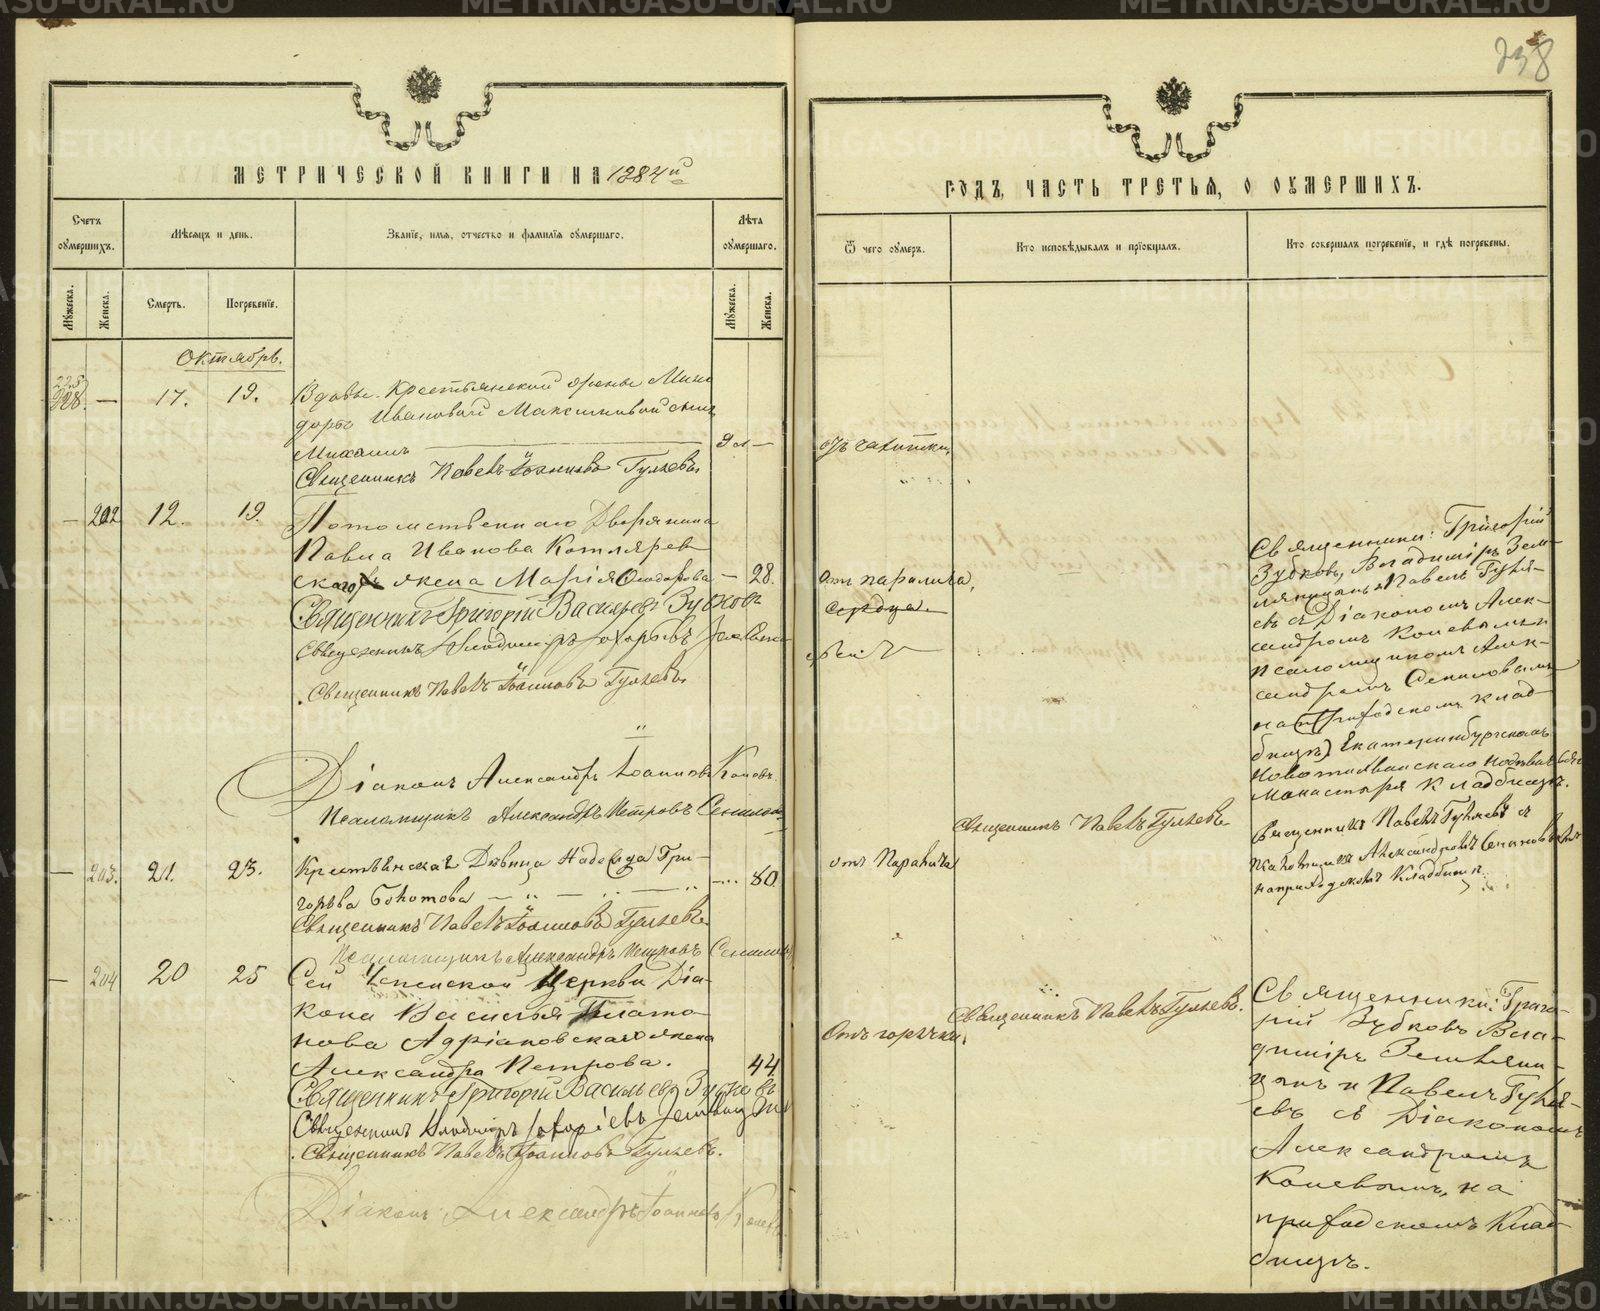 238
МЕТРИЧЕСКОЙ КНИГИ НА 1884 й
ГОДЪ, ЧАСТЬ ТРЕТЬЯ, О ОУМЕРШИХЪ.
Счетъ оумершихъ.
Мѣсяцъ и день.
Званїе, имя, отчество и фамилїя оумершаго.
Лѣта оумершаго.
Ѿ чего оумеръ.
Кто исповѣдывалъ и прїобщалъ.
Кто совершалъ погребенїе, и гдѣ погребены.
Мужеска.
Женска.
Смерть.
Погребенїе.
Мужеска.
Женска.
Октябрь.
228. — 17. 19.
Вдовы Крестьянской жены Мини
доры Ивановой Максимовой сынъ
Михаилъ
Священникъ Павелъ Іоанновъ Гуляевъ
отъ чахотки
— 202 12. 19.
Потомственнаго Дворянина
Павла Иванова Котлярев
скаго жена Марія Ѳеодорова — 28.
Священникъ Григорій Васильевъ Зубковъ
Священникъ Владиміръ Захарьевъ
Священникъ Павелъ Іоанновъ Гуляевъ
Діаконъ Александръ Іоанновъ Коневъ
Псаломщикъ Александръ Петровъ
отъ паралича
сердца.
Священники: Григорій
Зубковъ, Владиміръ Зем-
ляницынъ и Павелъ Гуля-
евъ съ Діакономъ Алек-
сандромъ Коневымъ и
псаломщикомъ Алек-
сандромъ
на (приходскомъ клад-
бищѣ) Екатеринбургскомъ
Новотихвинскаго
Монастыря Кладбищѣ.
— 203. 21. 23.
Крестьянская Дѣвица Надежда Гри-
горьева — 80
Священникъ Павелъ Іоанновъ Гуляевъ
Псаломщикъ Александръ Петровъ
отъ Паралича
Священникъ Павелъ Гуляевъ
Священникъ Павелъ Гуляевъ и
Псаломщикъ Александръ
на приходскомъ Кладбищѣ
— 204 20 25
Сей Успенской Церкви Діа-
кона Василья Плато-
нова Адріановская жена
Александра Петрова. 44
Священникъ Григорій Васильевъ Зубковъ
Священникъ Владиміръ Захаріевъ
Священникъ Павелъ Іоанновъ Гуляевъ.
Діаконъ Александръ Іоанновъ Коневъ
Отъ горячки
Священникъ Павелъ Гуляевъ.
Священники: Григо-
рій Зубковъ Вла-
диміръ Земляни-
цынъ и Павелъ Гуля-
евъ съ Діакономъ
Александромъ
Коневымъ, на
приходскомъ Клад-
бищѣ.
METRIKI.GASO-URAL.RU